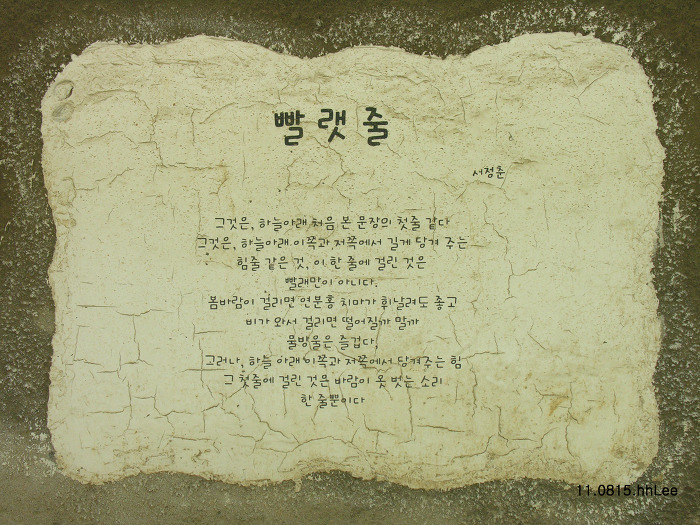 빨랫줄
서정춘
그것은, 하늘아래 처음 본 문장의 첫줄 같다
그것은, 하늘아래 이쪽과 저쪽에서 길게 당겨 주는
힘줄 같은 것, 이 한 줄에 걸린 것은
빨래만이 아니다.
봄바람이 걸리면 연분홍 치마가 휘날려도 좋고
비가 와서 걸리면 떨어질까 말까
물방울은 즐겁다.
그러나, 하늘 아래 이쪽과 저쪽에서 당겨주는 힘
그 첫줄에 걸린 것은 바람이 옷 벗는 소리
한 줄뿐이다
11.0815.hhLee